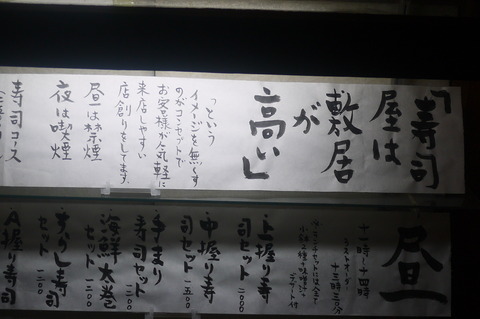 「寿司
屋は
敷居
が
高い」
「という
イメージを無くす
のがコンセプトで
お客様が気軽に
来店しやすい
店創りをしてます。
昼は禁煙
夜は喫煙
寿司コース
昼
十一時~十四時
ラストオーダー
十三時三十分
・上握り寿
司セット
・中握り寿
司セット 一五〇〇
・手まり
寿司セット 一二〇〇
海鮮太巻
セット 一二〇〇
寿司
セット 一二〇〇
A握り寿司